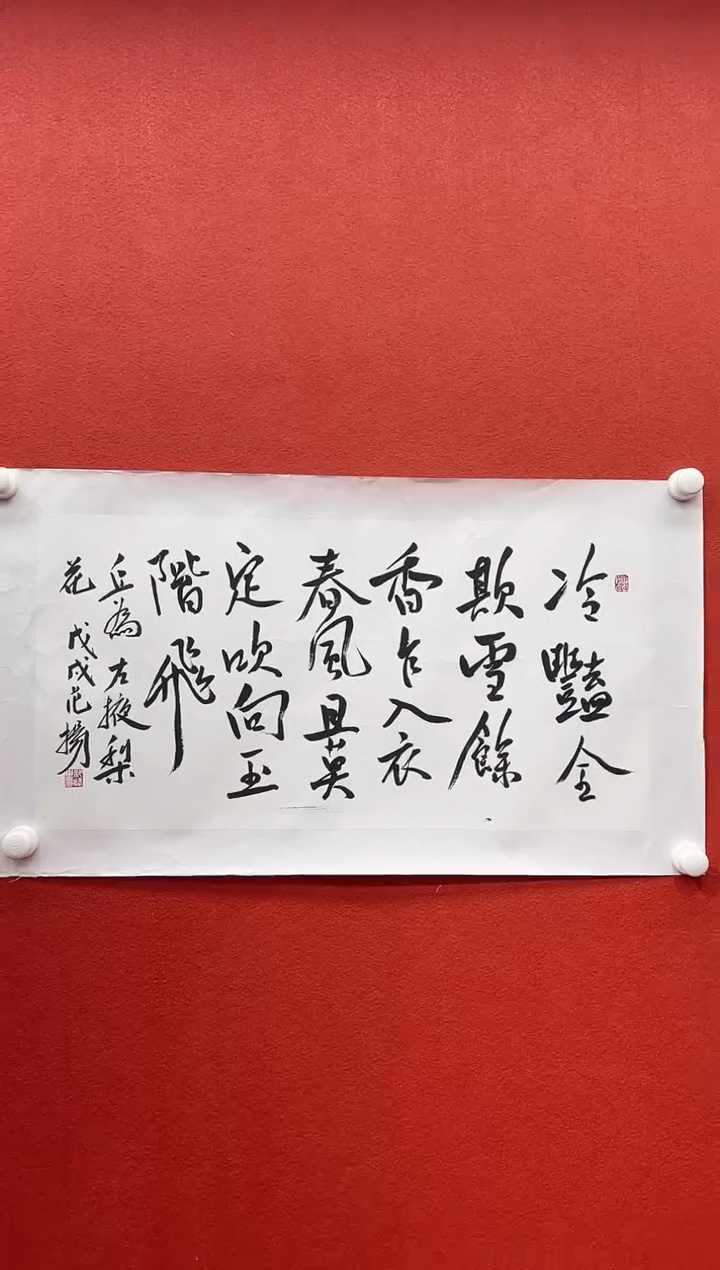 冷豔全
欺雪餘
香乍入衣
春風且莫
定吹向玉
階飛
丘為左掖梨
花 戊戌范揚